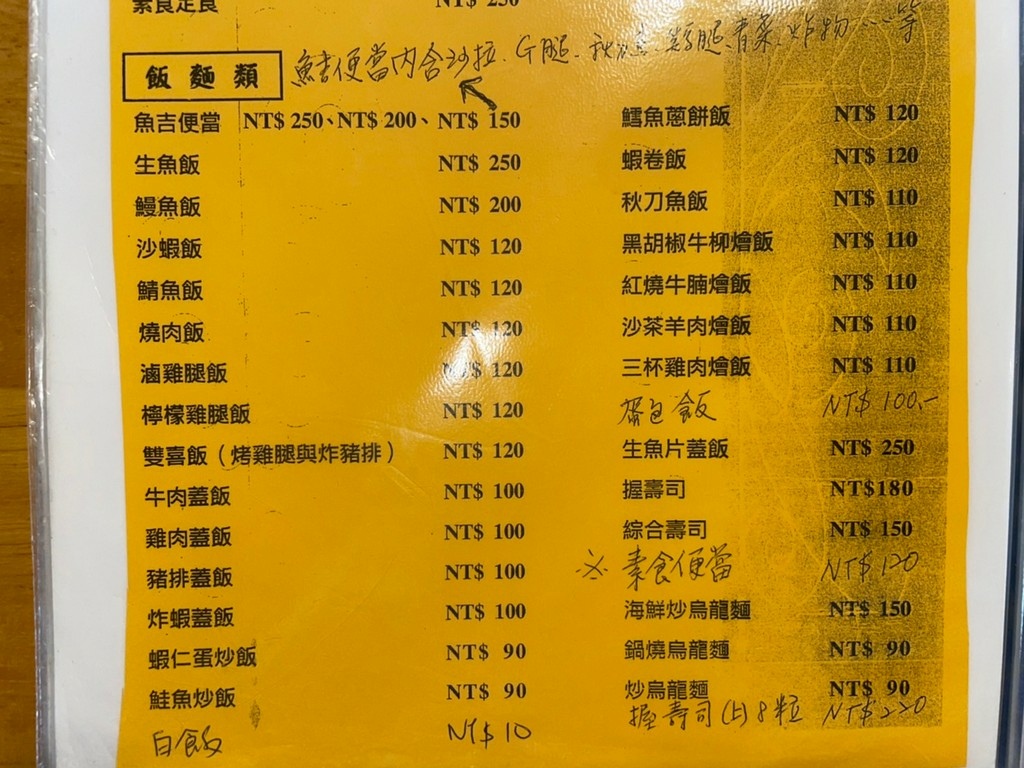 素食定食 NT$ 250
飯麵類
鮚便當內含沙拉、G腿、秋刀魚、雞腿、青菜、炸物……等
魚吉便當 NT$ 250、NT$ 200、NT$ 150
生魚飯 NT$ 250
鰻魚飯 NT$ 200
沙蝦飯 NT$ 120
鯖魚飯 NT$ 120
燒肉飯 NT$ 120
滷雞腿飯 NT$ 120
檸檬雞腿飯 NT$ 120
雙喜飯(烤雞腿與炸豬排) NT$ 120
牛肉蓋飯 NT$ 100
雞肉蓋飯 NT$ 100
豬排蓋飯 NT$ 100
炸蝦蓋飯 NT$ 100
蝦仁蛋炒飯 NT$ 90
鮭魚炒飯 NT$ 90
白飯 NT$ 10
鱈魚蔥餅飯 NT$ 120
蝦卷飯 NT$ 120
秋刀魚飯 NT$ 110
黑胡椒牛柳燴飯 NT$ 110
紅燒牛腩燴飯 NT$ 110
沙茶羊肉燴飯 NT$ 110
三杯雞肉燴飯 NT$ 110
蛋包飯 NT$ 100.-
生魚片蓋飯 NT$ 250
握壽司 NT$180
綜合壽司 NT$ 150
※素食便當 NT$ 120
海鮮炒烏龍麵 NT$ 150
鍋燒烏龍麵 NT$ 90
炒烏龍麵 NT$ 90
握壽司(上)8粒 NT$ 220